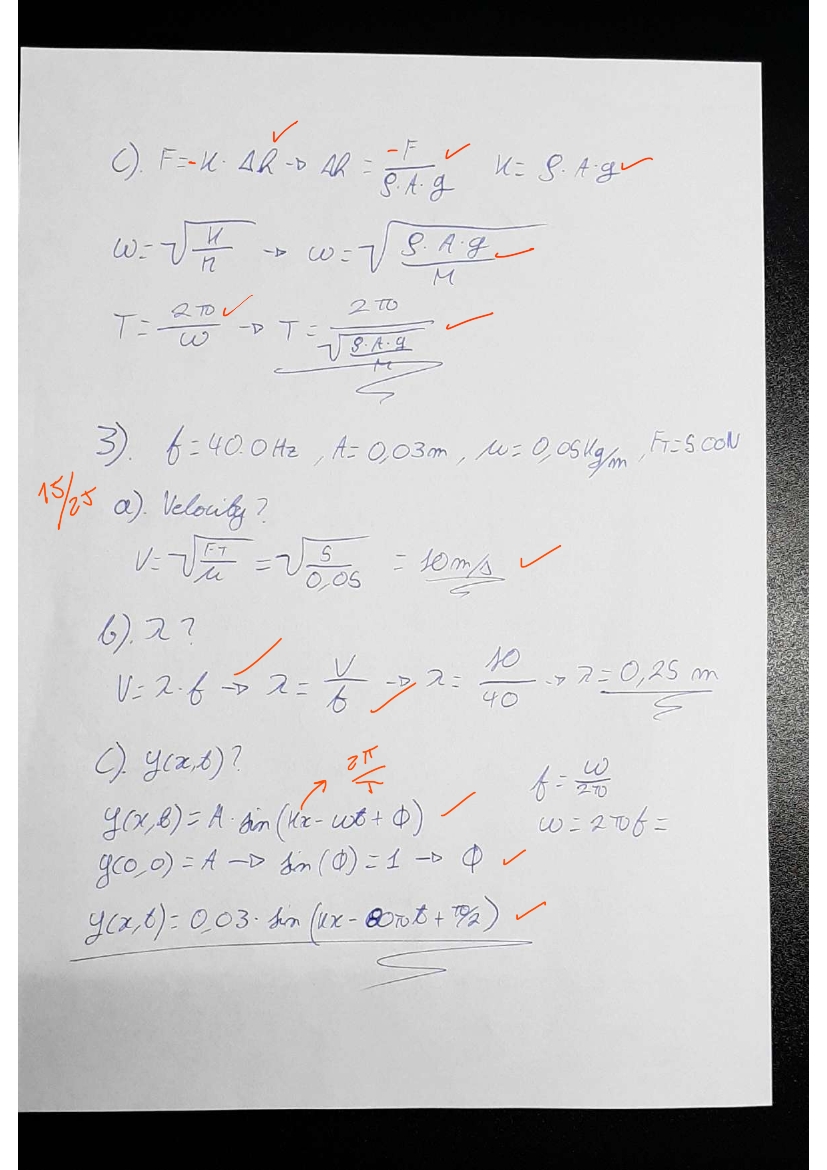 C). F=-K·Δh → Δh = -F/ρ.A.g K= ρ.A.g
ω=√(K/M) → ω=√(ρ.A.g/M)
T= 2π/ω → T= 2π/√(ρ.A.g/M)
3). f=40.0Hz, A=0,03m, μ=0,05Kg/m, FT=5.00N
15/25
a). Velocity?
V=√(FT/μ) =√(5/0,05) = 10m/s
b). λ?
V=λ.f → λ= V/f → λ= 10/40 → λ=0,25 m
C). y(x,t)?
2π/
f= ω/2π
y(x,t)=A·sin(Kx-ωt+Φ)
ω=2πf=
y(0,0)=A → sin(Φ)=1 → Φ
y(x,t)=0,03·sin(Kx-80πt+π/2)